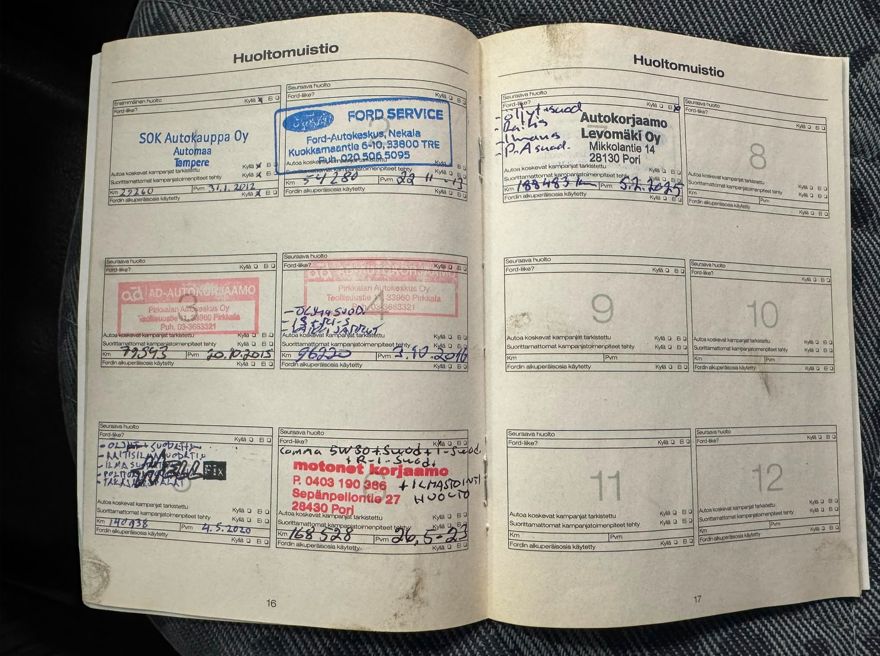 Huoltomuistio
Ensimmäinen huolto
Kyllä Ei
Ford-liike?
SOK Autokauppa Oy
Automaa
Tampere
Autoa koskevat kampanjat tarkistettu Kyllä Ei
Suorittamattomat kampanjatoimenpiteet tehty Kyllä Ei
Km 29260 Pvm 31.1.2012
Fordin alkuperäisosia käytetty Kyllä Ei
Seuraava huolto
Ford-liike? Kyllä Ei
FORD SERVICE
Ford-Autokeskus, Nekala
Kuokkamaantie 6-10, 33800 TRE
Puh. 020 506 5095
Autoa koskevat kampanjat tarkistettu
Suorittamattomat kampanjatoimenpiteet tehty
Km 54280 Pvm 22 11 -13
Fordin alkuperäisosia käytetty Kyllä Ei
Seuraava huolto
Ford-liike? Kyllä Ei
ad AD-AUTOKORJAAMO
Pirkkalan Autokeskus Oy
Teollisuustie 11, 33960 Pirkkala
Puh. 03-3683321
Autoa koskevat kampanjat tarkistettu Kyllä Ei
Suorittamattomat kampanjatoimenpiteet tehty Kyllä Ei
Km 79593 Pvm 20.10.2015
Fordin alkuperäisosia käytetty Kyllä Ei
Seuraava huolto
Ford-liike?
ad
Pirkkalan Autokeskus Oy
Teollisuustie 11, 33960 Pirkkala
03-3683321
4
Autoa koskevat kampanjat tarkistettu Kyllä Ei
Suorittamattomat kampanjatoimenpiteet tehty Kyllä Ei
Km 96220 Pvm 3.10.2016
Fordin alkuperäisosia käytetty Kyllä Ei
Seuraava huolto
Ford-liike? Kyllä Ei
FIX
Autoa koskevat kampanjat tarkistettu Kyllä Ei
Suorittamattomat kampanjatoimenpiteet tehty Kyllä Ei
Km 140938 Pvm 4.5.2020
Fordin alkuperäisosia käytetty Kyllä Ei
Seuraava huolto
Ford-liike? Kyllä Ei
Comma 5W30 + Suod + I-Suod
+ R-I-Suod.
motonet korjaamo
P. 0403 190 386
Sepänpellontie 27
28430 Pori
+ ILMASTOINTI
HUOLTO
Autoa koskevat kampanjat tarkistettu
Suorittamattomat kampanjatoimenpiteet tehty Kyllä Ei
Km 168528 Pvm 26,5-23
Fordin alkuperäisosia käytetty Kyllä Ei
16
Huoltomuistio
Seuraava huolto
Ford-liike? Kyllä Ei
Autokorjaamo
Levomäki Oy
Mikkolantie 14
28130 Pori
Autoa koskevat kampanjat tarkistettu
Suorittamattomat kampanjatoimenpiteet tehty
Km 188483 km Pvm 5.2.2025
Fordin alkuperäisosia käytetty Kyllä Ei
Seuraava huolto
Ford-liike? Kyllä Ei
8
Autoa koskevat kampanjat tarkistettu Kyllä Ei
Suorittamattomat kampanjatoimenpiteet tehty Kyllä Ei
Km Pvm
Fordin alkuperäisosia käytetty Kyllä Ei
Seuraava huolto
Ford-liike? Kyllä Ei
9
Autoa koskevat kampanjat tarkistettu Kyllä Ei
Suorittamattomat kampanjatoimenpiteet tehty Kyllä Ei
Km Pvm
Fordin alkuperäisosia käytetty Kyllä Ei
Seuraava huolto
Ford-liike? Kyllä Ei
10
Autoa koskevat kampanjat tarkistettu Kyllä Ei
Suorittamattomat kampanjatoimenpiteet tehty Kyllä Ei
Km Pvm
Fordin alkuperäisosia käytetty Kyllä Ei
Seuraava huolto
Ford-liike? Kyllä Ei
11
Autoa koskevat kampanjat tarkistettu Kyllä Ei
Suorittamattomat kampanjatoimenpiteet tehty Kyllä Ei
Km Pvm
Fordin alkuperäisosia käytetty Kyllä Ei
Seuraava huolto
Ford-liike? Kyllä Ei
12
Autoa koskevat kampanjat tarkistettu Kyllä Ei
Suorittamattomat kampanjatoimenpiteet tehty Kyllä Ei
Km Pvm
Fordin alkuperäisosia käytetty Kyllä Ei
17